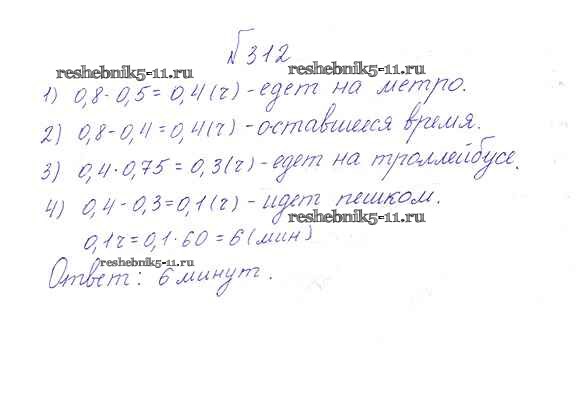 №312
reshebnik5-11.ru
1) 0,8·0,5=0,4(ч)-едет на метро.
2) 0,8-0,4=0,4(ч)-оставшееся время.
3) 0,4·0,75=0,3(ч)-едет на троллейбусе.
4) 0,4-0,3=0,1(ч)-идет пешком.
reshebnik5-11.ru
0,1ч=0,1·60=6(мин)
reshebnik5-11.ru
Ответ: 6 минут.